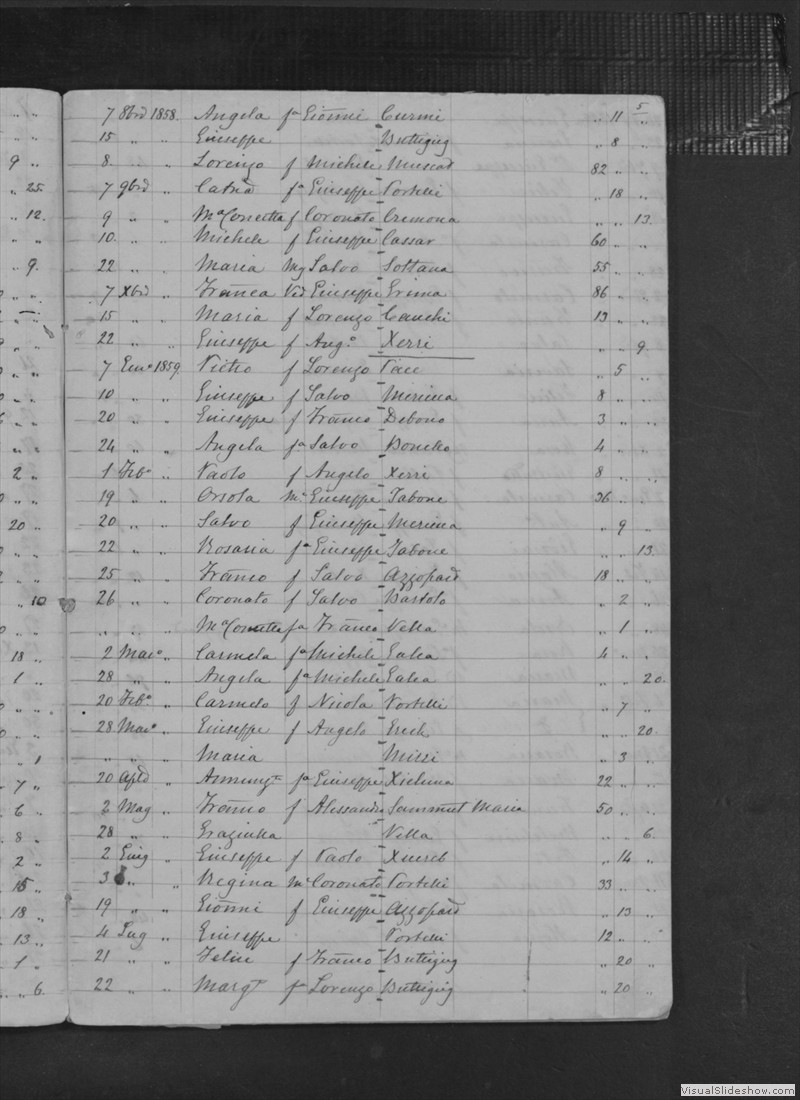 5
7 8bre 1858 Angela fa Gioñni Curmi „ 11 „
15 „ „ Giuseppe Buttigieg „ 8 „
9 „ 8 „ „ Lorenzo f Michele Muscat 82 „ „
„ 25 7 9bre „ Catna fa Giuseppe Portelli „ 18 „
„ 12 9 „ „ Ma Concetta f Coronato Cremona „ „ 13
10 „ „ Michele f Giuseppe Cassar 60 „ „
„ 9 22 „ „ Maria Mg Salvo Sottana 55 „ „
7 Xbre „ Franca Ved Giuseppe Grima 86 „ „
15 „ „ Maria f Lorenzo Cauchi 13 „ „
22 „ „ Giuseppe f Ango Xerri „ „ 9
7 Geno 1859 Pietro f Lorenzo Pace „ 5 „
10 „ „ Giuseppe f Salvo Meriena 8 „ „
20 „ „ Giuseppe f Franco Debono 3 „ „
24 „ „ Angela fa Salvo Bonello 4 „ „
2 „ 1 Febo „ Paolo f Angelo Xerri 8 „ „
19 „ „ Orsola Me Giuseppe Tabone 36 „ „
20 „ 20 „ „ Salvo f Giuseppe Meriena „ 9 „
22 „ „ Rosaria fa Giuseppe Tabone „ „ 13
25 „ „ Franco f Salvo Azzopard 18 „ „
„ 10 26 „ „ Coronato f Salvo Bartolo „ 2 „
„ „ „ Ma Concetta fa Franco Vella „ 1 „
18 „ 2 Maro „ Carmela fa Michele Galea 4 „ „
1 „ 28 „ „ Angela fa Michele Galea „ „ 20
20 Febo „ Carmelo f Nicola Portelli „ 7 „
28 Maro „ Giuseppe f Angelo Grech „ „ 20
„ 1 „ „ „ Maria Missi „ 3 „
„ 7 „ 20 Aple „ Annunza fa Giuseppe Xicluna 22 „ „
„ 6 „ 2 Mag „ Franco f Alessandro Sammut Maria 50 „ „
„ 8 „ 28 „ „ Graziella Vella „ „ 6
2 „ 2 Giug „ Giuseppe f Paolo Xuereb „ 14 „
15 „ 3 „ „ Regina Me Coronato Portelli 33 „ „
18 „ 19 „ „ Gioñni f Giuseppe Azzopard „ 13 „
„ 13 „ 4 Lug „ Giuseppe Portelli 12 „ „
„ 1 „ 21 „ „ Felice f Franco Buttigieg „ 20 „
„ „ 6 22 „ „ Margta fa Lorenzo Buttigieg „ 20 „
VisualSlideshow.com